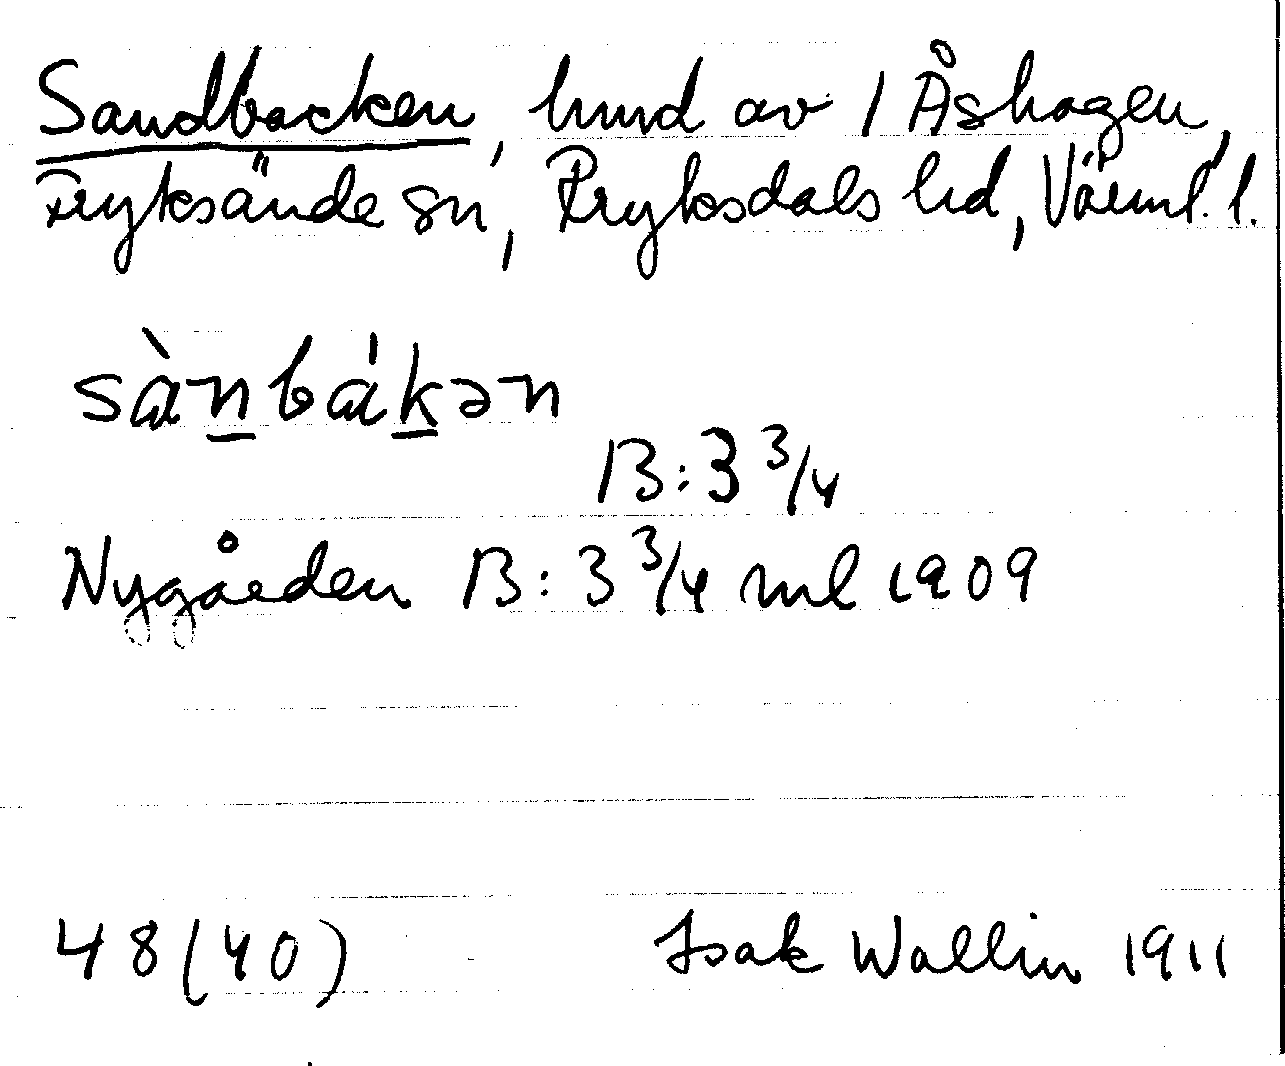 Sandbacken, hmd av 1 Åshagen,
Fryksände sn, Fryksdals hd, Värml. l.
sànbák̠ən
B: 3 3/4
Nygården B: 3 3/4 ml 1909
48 (40) Isak Wallin 1911